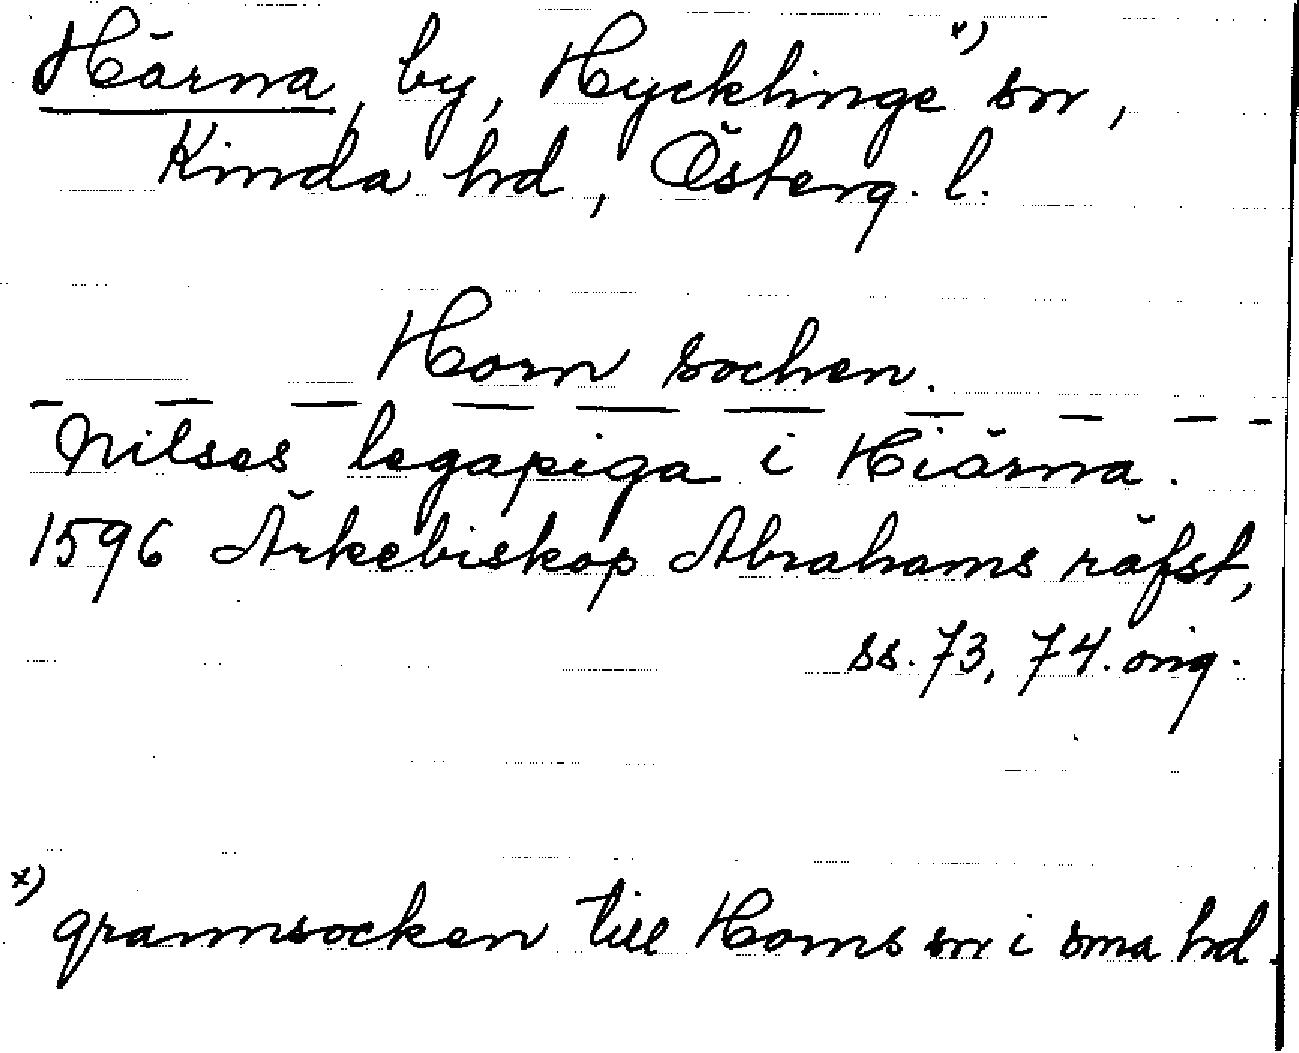 Härna, by, Hycklinge x) sn,
Kinda hd, Österg. l.
Horn sochen.
Nilses legapiga i Hiärna.
1596 Ärkebiskop Abrahams räfst,
ss. 73, 74. orig.
x) grannsocken till Horns sn i sma hd.